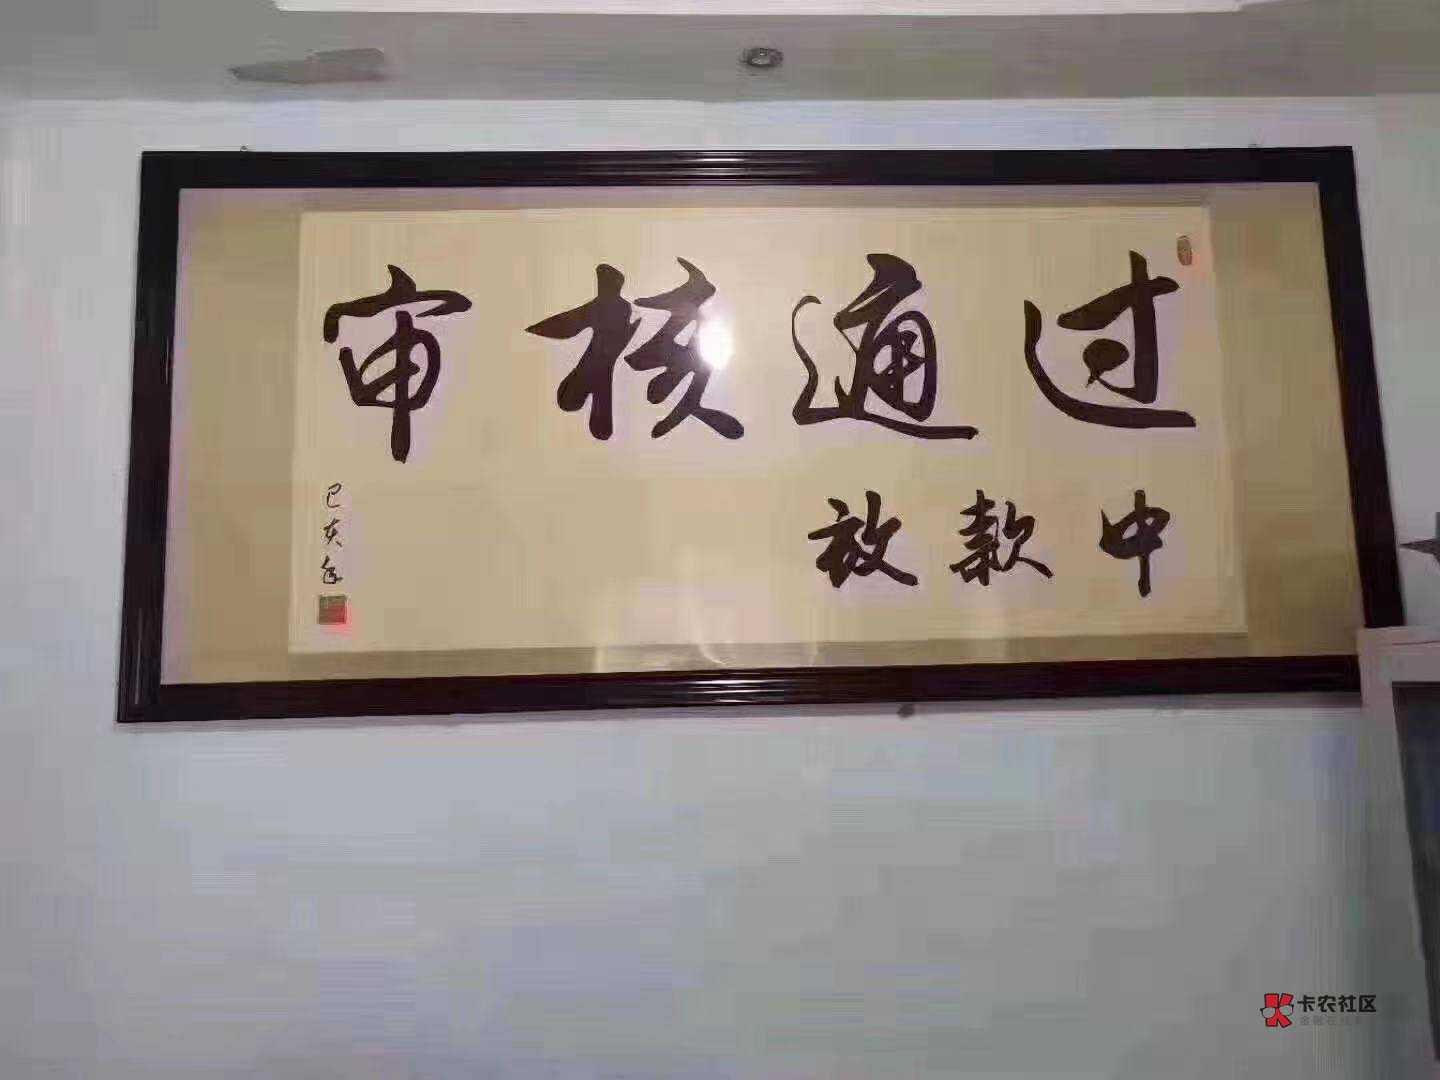 审核通过
放款中
己亥年
卡农社区